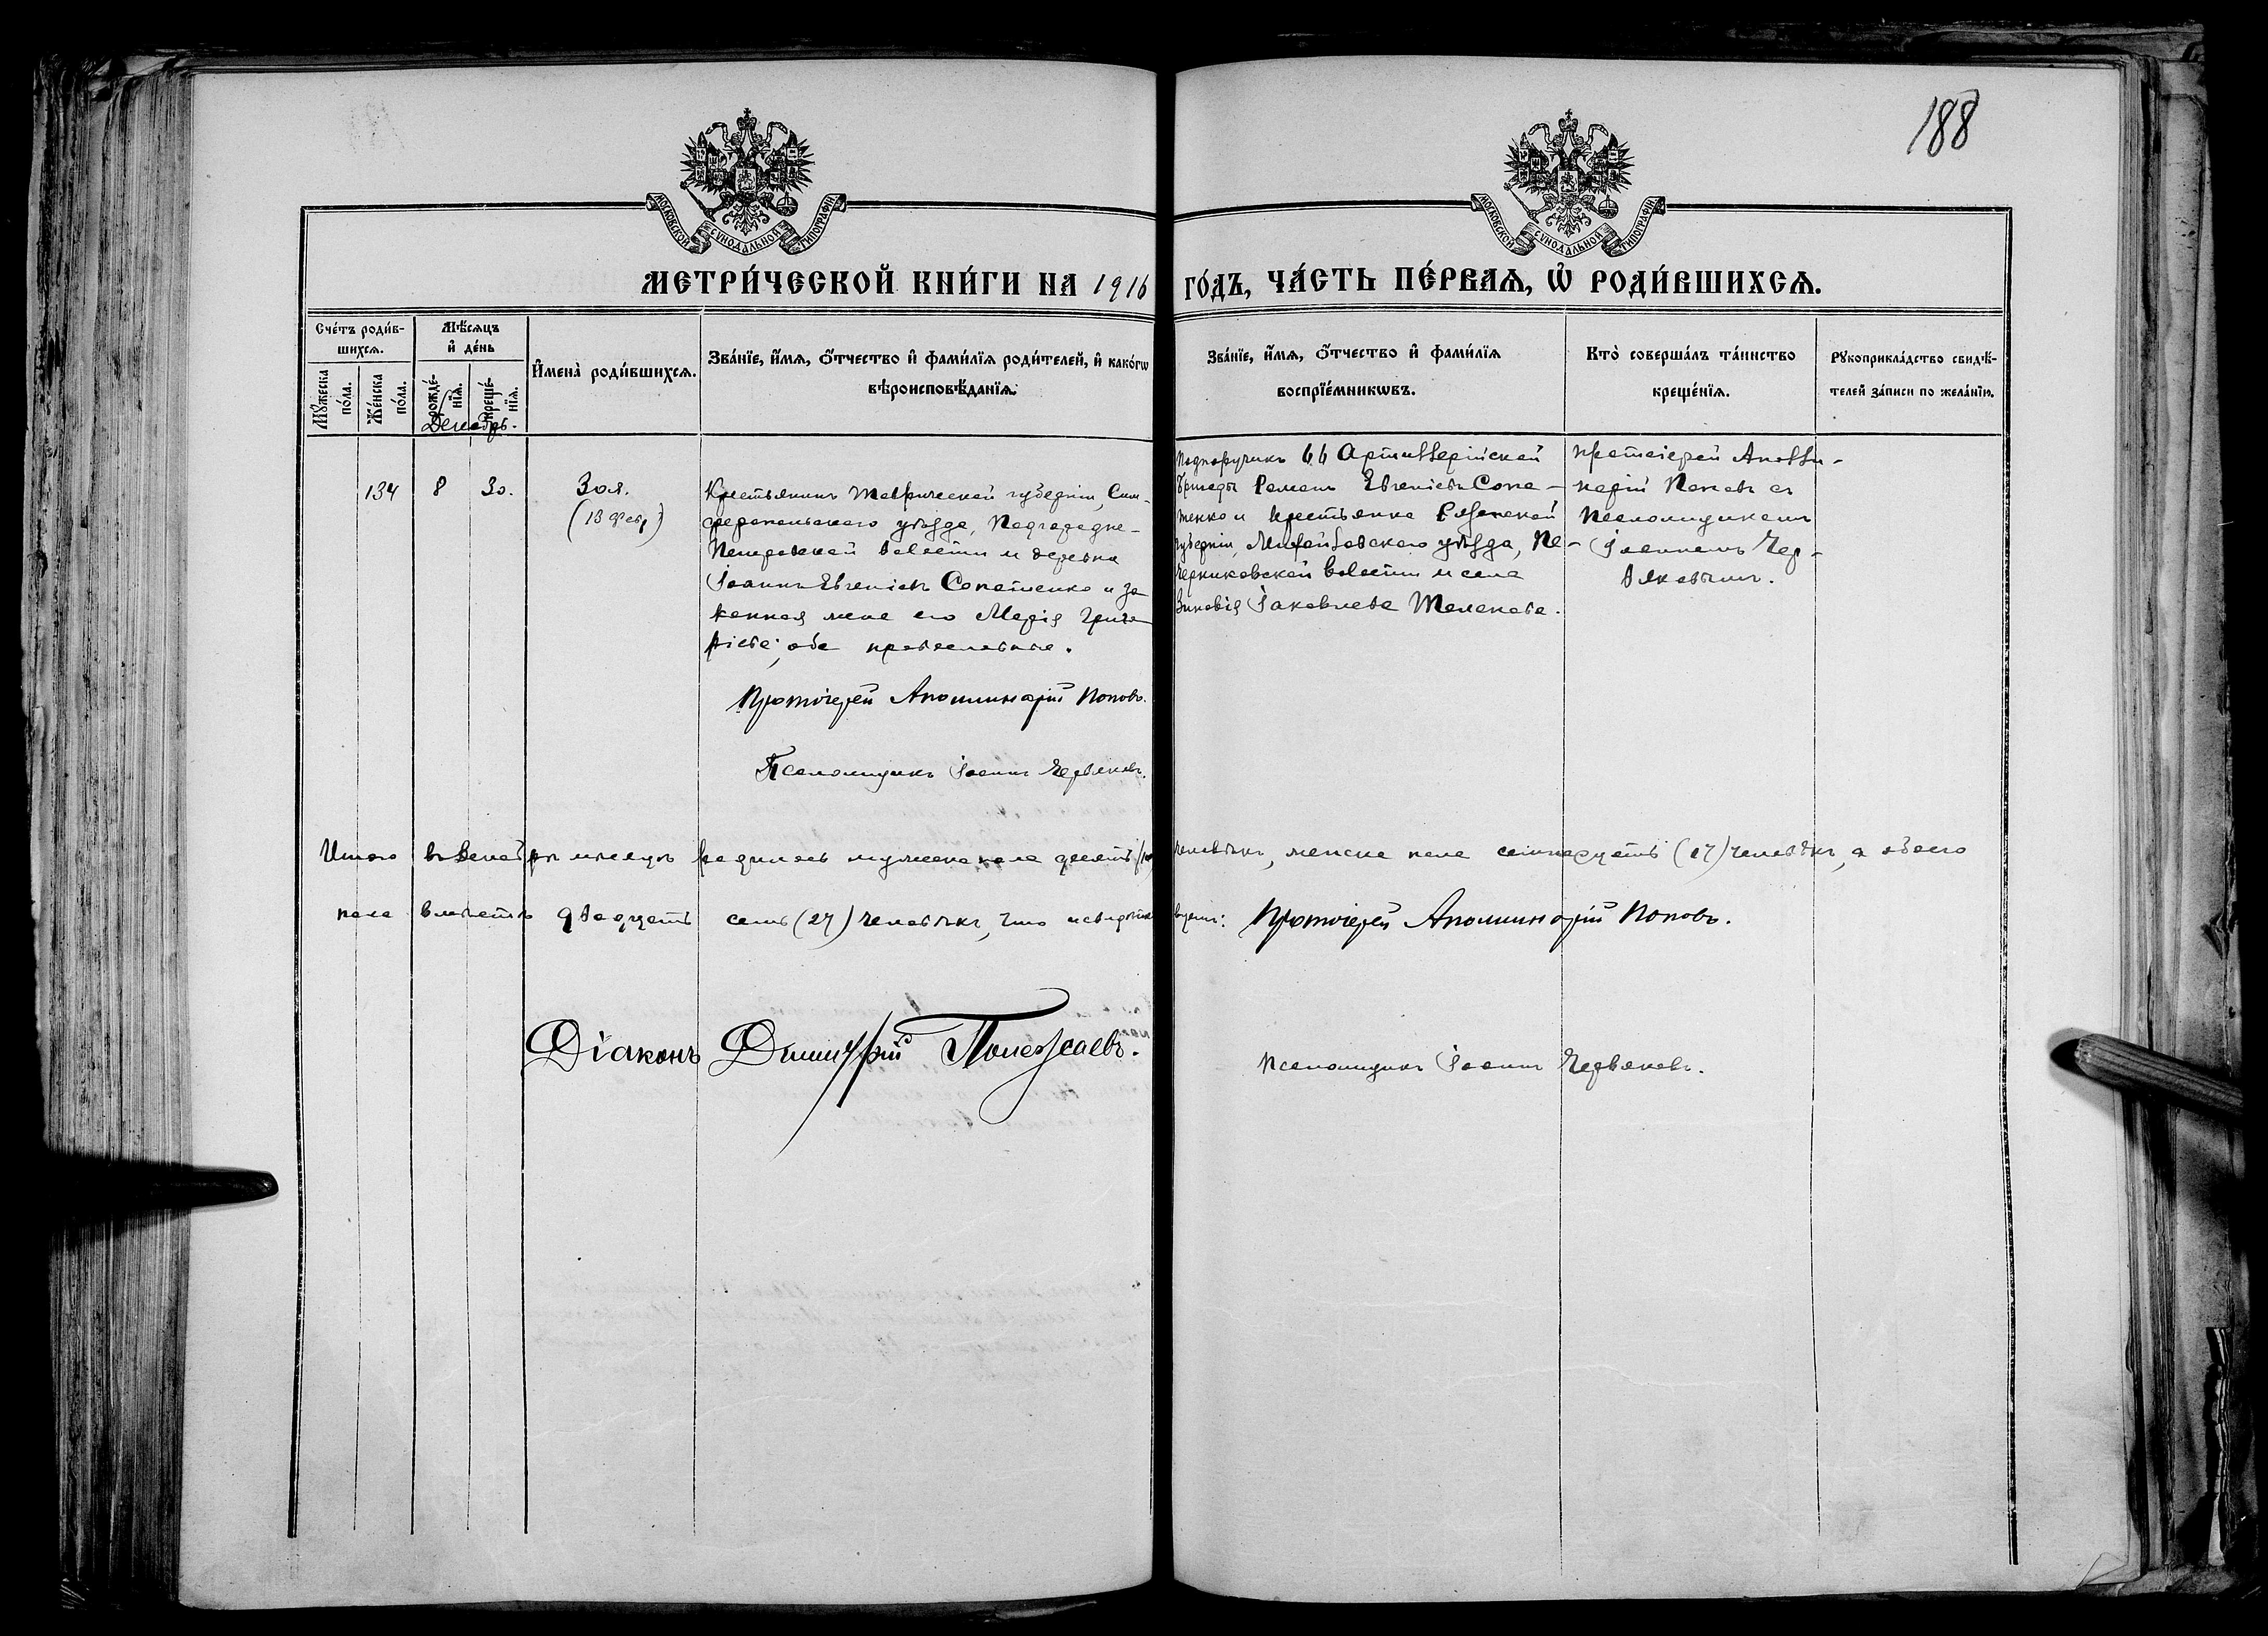 188
МОСКОВСКОЙ СУНОДАЛЬНОЙ ТИПОГРАФІИ
МОСКОВСКОЙ СУНОДАЛЬНОЙ ТИПОГРАФІИ
МЕТРИ́ЧЕСКОЙ КНИ́ГИ НА 1916 ГО́ДЪ, ЧА́СТЬ ПЕ́РВАѦ, Ѡ҆ РОДИ́ВШИХСѦ.
Сче́тъ роди́в-
шихсѧ.
Мꙋ́жеска по́ла.
Же́нска по́ла.
Мѣ́сѧцъ
и҆ де́нь
рожде́-
нїѧ.
креще́-
нїѧ.
И҆мена̀ роди́вшихсѧ.
Зва́нїе, и҆́мѧ, ѻ҆́тчество и҆ фами́лїѧ роди́телей, и҆ како́гѡ
вѣроисповѣ́данїѧ.
Зва́нїе, и҆́мѧ, ѻ҆́тчество и҆ фами́лїѧ
воспрїе́мникѡвъ.
Кто̀ соверша́лъ та́инство
креще́нїѧ.
Рꙋкоприкла́дство свидѣ́-
телей за́писи по жела́нїю.
Декабрь.
134 8 30. Зоя.
(13 Фев.)
Крестьянинъ Таврической губерніи, Сим-
феропольскаго уѣзда, Подгородне-
волости и деревни
Іоаннъ Евгеніевъ Сопатенко и за-
конная жена его Марія Григо-
рьева; оба православные.
Протоіерей Аполлинарій Поповъ.
Псаломщикъ Іоаннъ Червяковъ.
Подпоручикъ 66 Артиллерійской
бригады Романъ Евгеніевъ Сопа-
тенко и крестьянка Рязанской
губерніи, Михайловскаго уѣзда, Пе-
черниковской волости и села
Зиновія Іаковлева
Протоіерей Аполли-
нарій Поповъ съ
псаломщикомъ
Іоанномъ Чер-
вяковымъ.
Итого въ декабрѣ мѣсяцѣ родилось мужеска пола десять (10) человѣкъ, женска пола семнадцать (17) человѣкъ, а обоего
пола вмѣстѣ двадцать семь (27) человѣкъ, что и свидѣтельствуемъ: Протоіерей Аполлинарій Поповъ.
Діаконъ Димитрій Полежаевъ.
Псаломщикъ Іоаннъ Червяковъ.